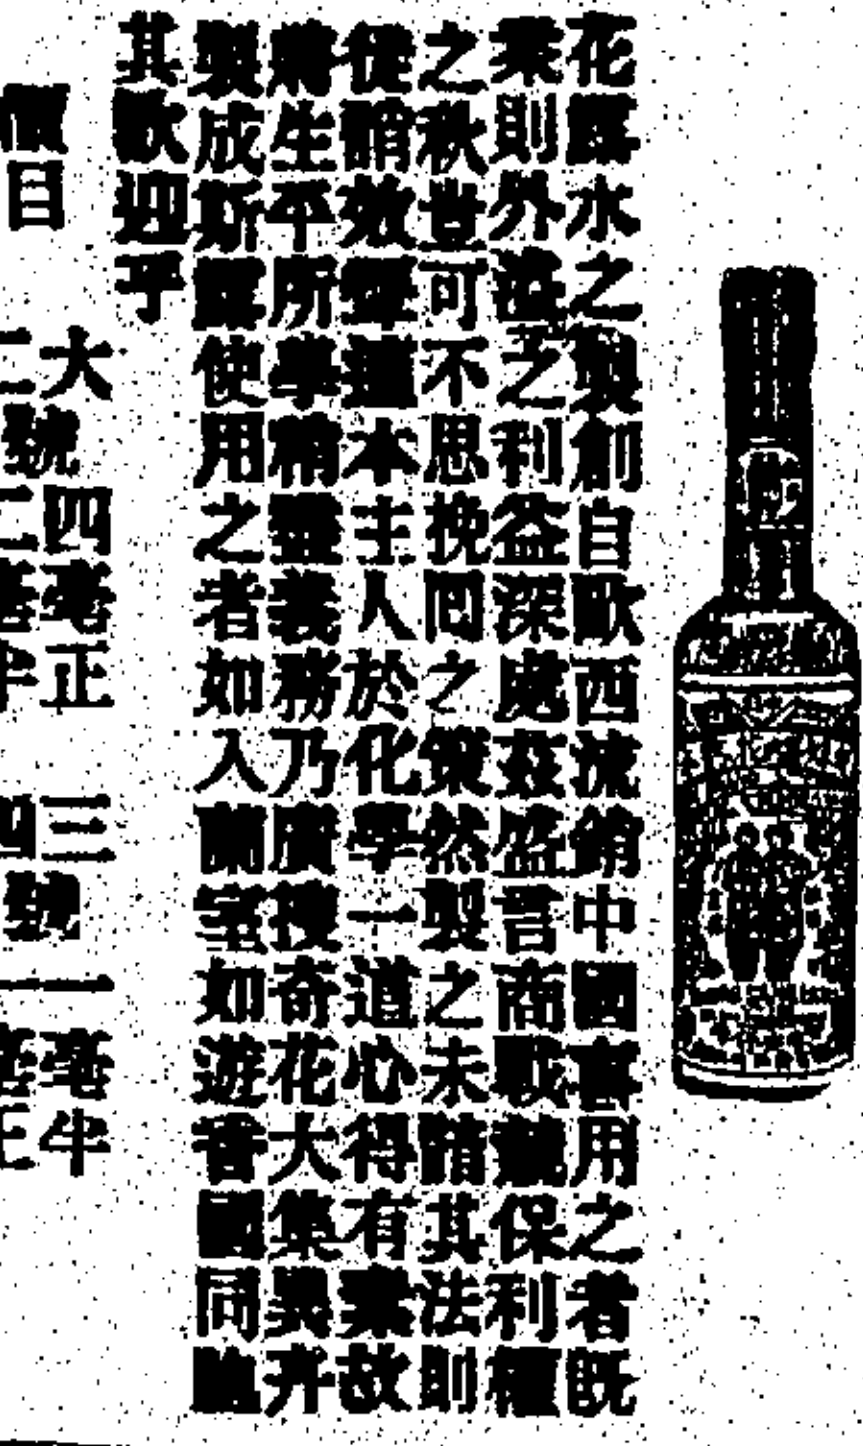 花露水之製創自歐西流銷中國喜用之者既
衆則外溢之利益深處茲盛言商戰競保利權
之秋豈可不思挽回之策然製之未諳其法則
從誚效顰進本主人於化學一道心得有素故
將生平所學稍盡義務乃廣搜奇花大集異卉
製成斯露使用之者如入蘭室如遊香國同胞
其歡迎乎
價目
大號 四毫正 三號 一毫半
二號 二毫半 四號 一毫正